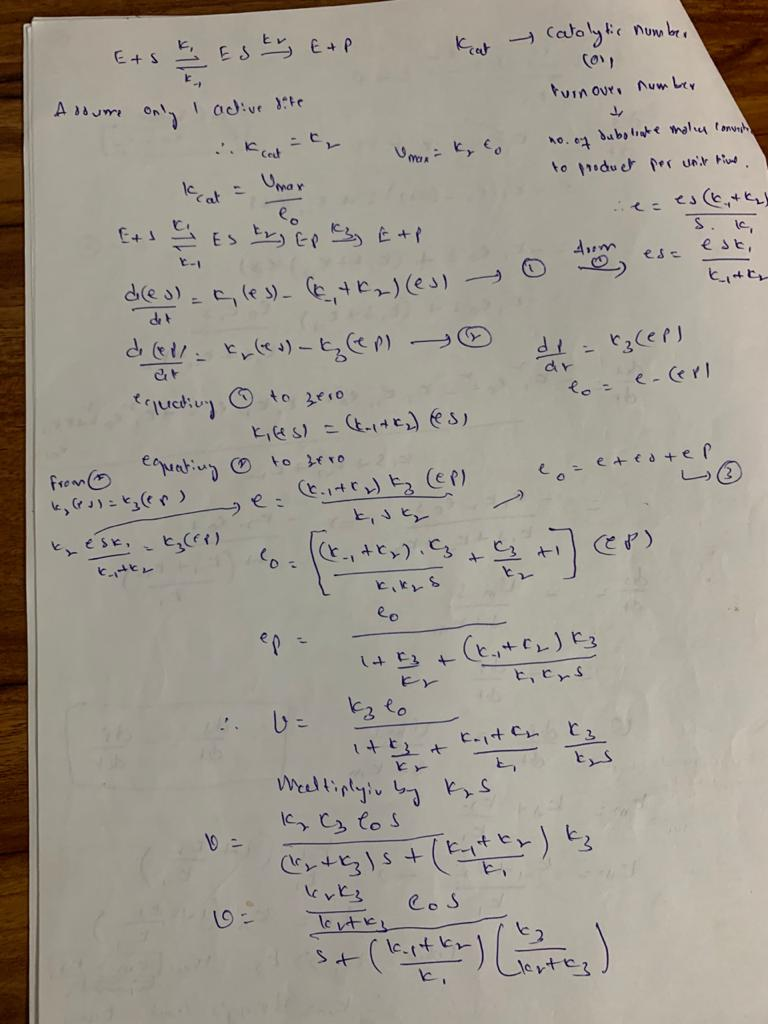 E + S ⇌ ES → E + P (k₁, k₋₁, k₂)
k_cat → Catalytic number
(or)
turnover number
↓
no. of substrate moles
to product per unit time.
Assume only 1 active site
∴ k_cat = k₂
v_max = k₂ e₀
k_cat = v_max / e₀
∴ e = es(k₋₁+k₂) / S. k₁
E + S ⇌ ES → EP → E + P (k₁, k₋₁, k₂, k₃)
d(es)/dt = k₁(es) - (k₋₁+k₂)(es) → ①
from ① → es = e s k₁ / k₋₁+k₂
d(ep)/dt = k₂(es) - k₃(ep) → ②
dp/dt = k₃(ep)
e₀ = e - (ep)
equating ① to zero
k₁(es) = (k₋₁+k₂)(es)
equating ② to zero
from ②
k₂(es) = k₃(ep)
k₂ e s k₁ / k₋₁+k₂ = k₃(ep)
e = (k₋₁+k₂) k₃ (ep) / k₁ s k₂
e₀ = e + es + ep → ③
e₀ = [(k₋₁+k₂).k₃ / k₁k₂s + k₃/k₂ + 1] (ep)
ep = e₀ / 1 + k₃/k₂ + (k₋₁+k₂) k₃ / k₁k₂s
∴ v = k₃ e₀ / 1 + k₃/k₂ + k₋₁+k₂ / k₁ k₃ / k₂s
by k₂s
v = k₂ k₃ e₀ s / (k₂+k₃)s + (k₋₁+k₂ / k₁) k₃
v = k₂k₃ / k₂+k₃ e₀ s / s + (k₋₁+k₂ / k₁)(k₃ / k₂+k₃)